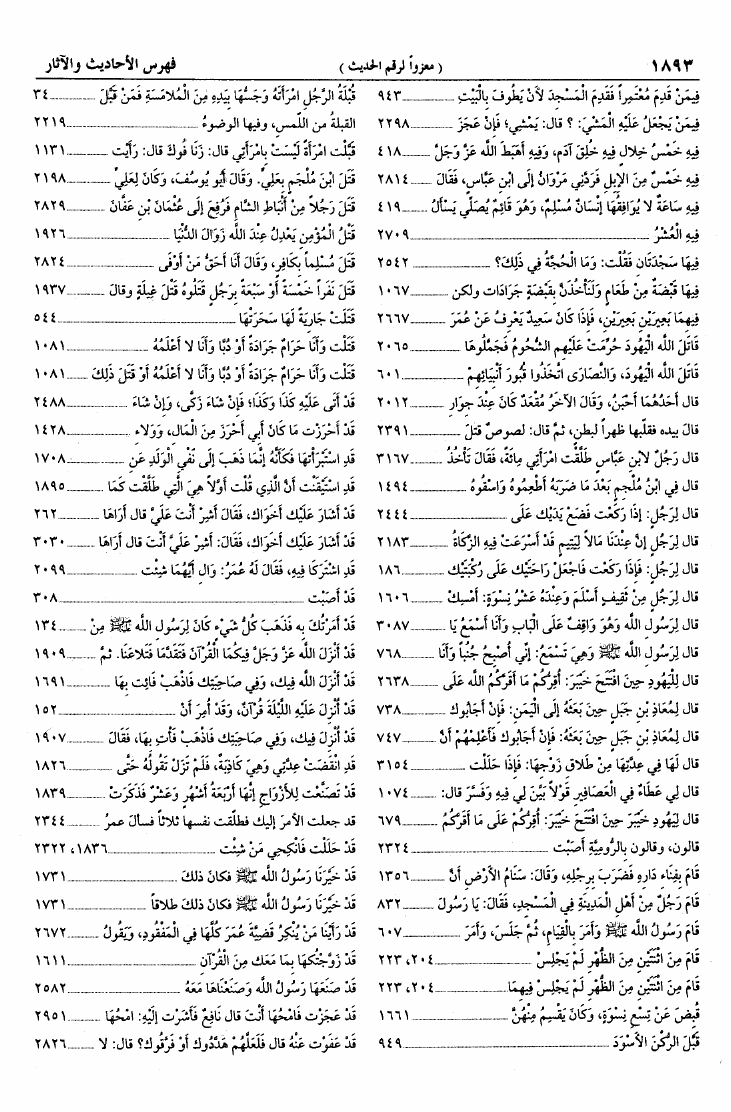 ١٨٩٣
( معزواً لرقم الحديث )
فهرس الأحاديث والآثار
فِيمَنْ قَدِمَ مُعْتَمِراً فَقَدِمَ الْمَسْجِدَ لأَنْ يَطُوفَ بِالْبَيْتِ ٩٤٣
فِيمَنْ يَجْعَلُ عَلَيْهِ الْمَشْيَ: ؟ قال: يَمْشِي؛ فإِنْ عَجَزَ ٢٢٩٨
فِيهِ خَمْسُ خِلالٍ فِيهِ خُلِقَ آدَم، وَفِيهِ أَهْبَطَ اللَّه عَزَّ وَجَلَّ ٤١٨
فِيهِ خَمْسٌ مِنَ الإِبِلِ فَرَدَّنِي مَرْوَانُ إِلَى ابْنِ عَبَّاسٍ، فَقَالَ ٢٨١٤
فِيهِ سَاعَةٌ لا يُوَافِقُهَا إِنْسَانٌ مُسْلِمٌ، وَهُوَ قَائِمٌ يُصَلِّي يَسْأَلُ ٤١٩
فِيهِ الْعُشْرُ ٢٧٠٩
فِيهَا سَجْدَتَان فَقُلْت: وَمَا الْحُجَّةُ فِي ذَلِكَ؟ ٢٥٤٢
فِيهَا قَبْضَةٌ مِنْ طَعَامٍ وَلَنَأْخُذَنَّ بِقَبْضَةٍ جَرَادَات ولكن ١٠٦٧
فِيهِمَا بَعِيرَيْنِ بَعِيرَيْنِ، فَإِذَا كَانَ سَعِيدٌ يَعْرِفُ عَنْ عُمَرَ ٢٦٦٧
قَاتَلَ اللَّه الْيَهُودَ حُرِّمَتْ عَلَيْهِم الشُّحُومُ فَجَمَلُوهَا ٢٠٦٥
قَاتَلَ اللَّه الْيَهُودَ، وَالنَّصَارَى اتَّخَذُوا قُبُورَ أَنْبِيَائِهِمْ ٦٠١
قال أَحَدُهُمَا أَحْبَنُ، وَقَالَ الآخَرُ مُقْعَدٌ كَانَ عِنْدَ جِوَارِ ٢٠١٢
قالَ بيده فقلبها ظهراً لبطنٍ، ثمَّ قال: لصوصٌ قتلَ ٢٣٩١
قال رَجُلٌ لابْنِ عَبَّاسٍ طَلَّقْت امْرَأَتِي مِائَةً، فَقَالَ تَأْخُذُ ٣١٦٧
قال فِي ابْنِ مُلْجِمٍ بَعْدَ مَا ضَرَبَهُ أَطْعِمُوهُ وَاسْقُوهُ ١٤٩٤
قال لِرَجُلٍ: إِذَا رَكَعْت فَضَعْ يَدَيْك عَلَى ٢٤٤٤
قال لِرَجُلٍ إِنَّ عِنْدَنَا مَالاً لِيَتِيمٍ قَدْ أَسْرَعَتْ فِيهِ الزَّكَاةُ ٢١٨٣
قال لِرَجُلٍ: فَإِذَا رَكَعْت فَاجْعَلْ رَاحَتَيْك عَلَى رُكْبَتَيْك ١٨٦
قال لِرَجُلٍ مِنْ ثَقِيفٍ أَسْلَمَ وَعِنْدَهُ عَشْرُ نِسْوَةٍ: أَمْسِكْ ١٦٠٦
قال لِرَسُولِ اللَّه وَهُوَ وَاقِفٌ عَلَى الْبَابِ وَأَنَا أَسْمَعُ يَا ٣٠٨٧
قال لِرَسُولِ اللَّه ﷺ وَهِيَ تَسْمَعُ: إِنِّي أُصْبِحُ جُنُباً وَأَنَا ٧٦٨
قال لِلْيَهُودِ حِينَ افْتَتَحَ خَيْبَرَ: أُقِرُّكُمْ مَا أَقَرَّكُمُ اللَّه عَلَى ٢٦٣٨
قال لِمُعَاذِ بْنِ جَبَلٍ حِينَ بَعَثَهُ إِلَى الْيَمَنِ: فَإِنْ أَجَابُوك ٧٣٨
قال لِمُعَاذِ بْنِ جَبَلٍ حِينَ بَعَثَهُ: فَإِنْ أَجَابُوك فَأَعْلِمْهُمْ أَنَّ ٧٤٧
قال لَهَا فِي عِدَّتِهَا مِنْ طَلاقِ زَوْجِهَا: فَإِذَا حَلَلْت ٣١٥٤
قال لِي عَطَاءٌ فِي الْعَصَافِيرِ قَوْلاً بَيَّنَ لِي فِيهِ وَفَسَّرَ قال: ١٠٧٤
قال لِيَهُودِ خَيْبَرَ حِينَ افْتَتَحَ خَيْبَرَ: أُقِرُّكُمْ عَلَى مَا أَقَرَّكُمُ ٦٧٩
قالون، وقالون بِالرُّومِيَّةِ أَصَبْت ٢٣٢٤
قَامَ بِفِنَاءِ دَارِهِ فَضَرَبَ بِرِجْلِهِ، وَقَالَ: سَنَامُ الأَرْضِ أَنَّ ١٣٥٦
قَامَ رَجُلٌ مِنْ أَهْلِ الْمَدِينَةِ فِي الْمَسْجِدِ، فَقَالَ: يَا رَسُولَ ٨٣٢
قَامَ رَسُولُ اللَّه ﷺ وَأَمَرَ بِالْقِيَامِ، ثُمَّ جَلَسَ، وَأَمَرَ ٦٠٧
قَامَ مِنَ اثْنَتَيْنِ مِنَ الظُّهْرِ لَمْ يَجْلِسْ ٢٠٤، ٢٢٣
قَامَ مِنَ اثْنَتَيْنِ مِنَ الظُّهْرِ لَمْ يَجْلِسْ فِيهِمَا ٢٠٤، ٢٢٣
قُبِضَ عَنْ تِسْعِ نِسْوَةٍ، وَكَانَ يَقْسِمُ مِنْهُنَّ ١٦٦١
قَبَّلَ الرُّكْنَ الأَسْوَدَ ٩٤٩
قُبْلَةُ الرَّجُلِ امْرَأَتَهُ وَجَسُّهَا بِيَدِهِ مِنَ الْمُلامَسَةِ فَمَنْ قَبَّلَ ٣٤
القبلةُ من اللَّمسِ، وفيها الوضوءُ ٢٢١٩
قَبَّلْت امْرَأَةً لَيْسَتْ بِامْرَأَتِي قال: زَنَا فُوكَ قال: رَأَيْت ١١٣١
قَتَلَ ابْنَ مُلْجَمٍ بِعَلِيٍّ. وَقَالَ أَبُو يُوسُفَ، وَكَانَ لِعَلِيٍّ ٢١٩٨
قَتَلَ رَجُلاً مِنْ أَنْبَاطِ الشَّامِ فَرُفِعَ إِلَى عُثْمَانَ بْنِ عَفَّانَ ٢٨٢٩
قَتْلُ الْمُؤْمِنِ يَعْدِلُ عِنْدَ اللَّه زَوَالَ الدُّنْيَا ١٩٢٦
قَتَلَ مُسْلِماً بِكَافِرٍ، وَقَالَ أَنَا أَحَقُّ مَنْ أَوْفَى ٢٨٢٤
قَتَلَ نَفَراً خَمْسَةً أَوْ سَبْعَةً بِرَجُلٍ قَتَلُوهُ قَتْلَ غِيلَةٍ وقالَ ١٩٣٧
قَتَلَتْ جَارِيَةً لَهَا سَحَرَتْهَا ٥٤٤
قَتَلْت وَأَنَا حَرَامٌ جَرَادَةً أَوْ دُبًّا وَأَنَا لا أَعْلَمُهُ ١٠٨١
قَتَلْت وَأَنَا حَرَامٌ جَرَادَةً أَوْ دُبًّا وَأَنَا لا أَعْلَمُهُ أَوْ قَتَلَ ذَلِكَ ١٠٨١
قَدْ أَتَى عَلَيْهِ كَذَا وَكَذَا؛ فإِنْ شَاءَ زَكَّى، وَإِنْ شَاءَ ٢٤٨٨
قَدْ أَحْرَزْت مَا كَانَ أَبِي أَحْرَزَ مِنَ الْمَالِ، وَوَلاءِ ١٤٢٨
قَدِ اسْتَبْرَأَتْهَا فَكَأَنَّهُ إِنَّمَا ذَهَبَ إِلَى نَفْيِ الْوَلَدِ عَنِ ١٧٠٨
قَدِ اسْتَيْقَنْت أَنَّ الَّذِي قُلْت أَوَّلاً هِيَ الَّتِي طَلَّقْت كَمَا ١٨٩٥
قَدْ أَشَارَ عَلَيْك أَخَوَاك، فَقَالَ أَشِرْ أَنْتَ عَلَيَّ قال أَرَاهَا ٢٦٢
قَدْ أَشَارَ عَلَيْك أَخَوَاك، فَقَالَ: أَشِرْ عَلَيَّ أَنْتَ قال أَرَاهَا ٣٠٣٠
قَدِ اشْتَرَكَا فِيهِ، فَقَالَ لَهُ عُمَرُ: وَالِ أَيَّهُمَا شِئْت ٢٠٩٩
قَدْ أَصَبْت ٣٠٨
قَدْ أَمَرْتُكَ بِهِ فَذَهَبَ كُلُّ شَيْءٍ كَانَ لِرَسُولِ اللَّه ﷺ مِنْ ١٣٤
قَدْ أَنْزَلَ اللَّه عَزَّ وَجَلَّ فِيكُمَا الْقُرْآنَ فَتَقَدَّمَا فَتَلاعَنَا. ثمَّ ١٩٠٩
قَدْ أُنْزِلَ اللَّه فِيك، وَفِي صَاحِبَتِك فَاذْهَبْ فَائِت بِهَا ١٦٩١
قَدْ أُنْزِلَ عَلَيْهِ اللَّيْلَةَ قُرْآنٌ، وَقَدْ أُمِرَ أَنْ ١٥٢
قَدْ أُنْزِلَ فِيك، وَفِي صَاحِبَتِك فَاذْهَبْ فَأْتِ بِهَا، فَقَالَ ١٩٠٧
قَدِ انْقَضَتْ عِدَّتِي وَهِيَ كَاذِبَةٌ، فَلَمْ تَزَلْ تَقُولُهُ حَتَّى ١٨٢٦
قَدْ تَصَنَّعْت لِلأَزْوَاجِ إِنَّهَا أَرْبَعَةُ أَشْهُرٍ وَعَشْرٌ فَذَكَرَتْ ١٨٣٩
قد جعلت الأمرَ إليك فطلَّقت نفسها ثلاثاً فسألَ عمرُ ٢٣٤٤
قَدْ حَلَلْت فَانْكِحِي مَنْ شِئْت ١٨٣٦، ٢٣٢٢
قَدْ خَيَّرَنَا رَسُولُ اللَّه ﷺ فكانَ ذلكَ ١٧٣١
قَدْ خَيَّرَنَا رَسُولُ اللَّه ﷺ فكانَ ذلكَ طلاقاً ١٧٣١
قَدْ رَأَيْنَا مَنْ يُنْكِرُ قَضِيَّةَ عُمَرَ كُلَّهَا فِي الْمَفْقُودِ، وَيَقُولُ ٢٦٧٢
قَدْ زَوَّجْتُكهَا بِمَا مَعَك مِنَ الْقُرْآنِ ١٦١١
قَدْ صَنَعَهَا رَسُولُ اللَّه وَصَنَعْنَاهَا مَعَهُ ٢٥٨٢
قَدْ عَجَزْت فَامْحُهَا أَنْتَ قال نَافِعٌ فَأَشَرْت إِلَيْهِ: امْحُهَا ٢٩٥١
قَدْ عَفَوْت عَنْهُ قال فَلَعَلَّهُمْ هَدَّدُوك أَوْ فَرَّقُوك؟ قال: لا ٢٨٢٦